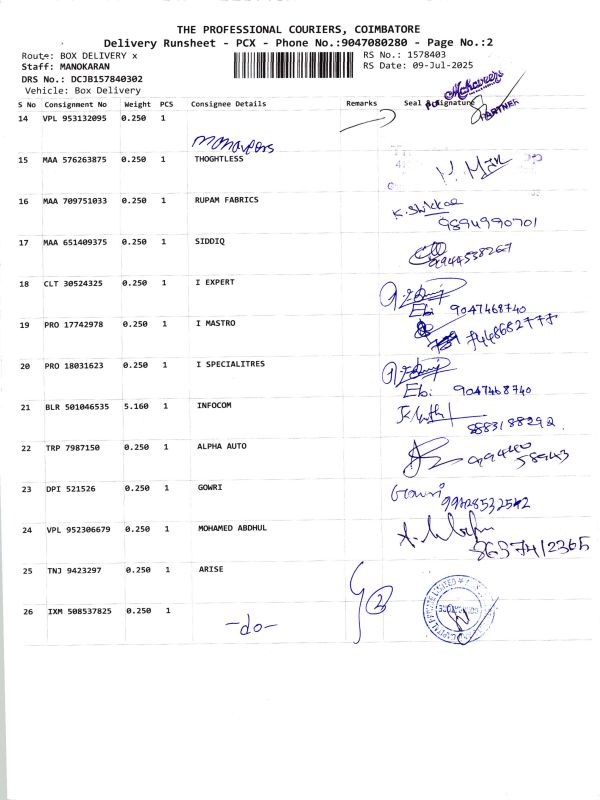 THE PROFESSIONAL COURIERS, COIMBATORE
Delivery Runsheet - PCX - Phone No.:9047080280 - Page No.:2
Route: BOX DELIVERY x RS No.: 1578403
Staff: MANOKARAN RS Date: 09-Jul-2025
DRS No.: DCJB157840302
Vehicle: Box Delivery
PARTNER
S No Consignment No Weight PCS Consignee Details Remarks Seal & Signature
14 VPL 953132095 0.250 1
15 MAA 576263875 0.250 1 THOGHTLESS
16 MAA 709751033 0.250 1 RUPAM FABRICS
9894990701
17 MAA 651409375 0.250 1 SIDDIQ
9944538267
18 CLT 30524325 0.250 1 I EXPERT
Ebi 9047468740
19 PRO 17742978 0.250 1 I MASTRO
7448682777
20 PRO 18031623 0.250 1 I SPECIALITRES
Ebi 9047468740
21 BLR 501046535 5.160 1 INFOCOM
8883188292
22 TRP 7987150 0.250 1 ALPHA AUTO
23 DPI 521526 0.250 1 GOWRI
Gowri
24 VPL 952306679 0.250 1 MOHAMED ABDHUL
8637412365
25 TNJ 9423297 0.250 1 ARISE
2
26 IXM 508537825 0.250 1
-do-